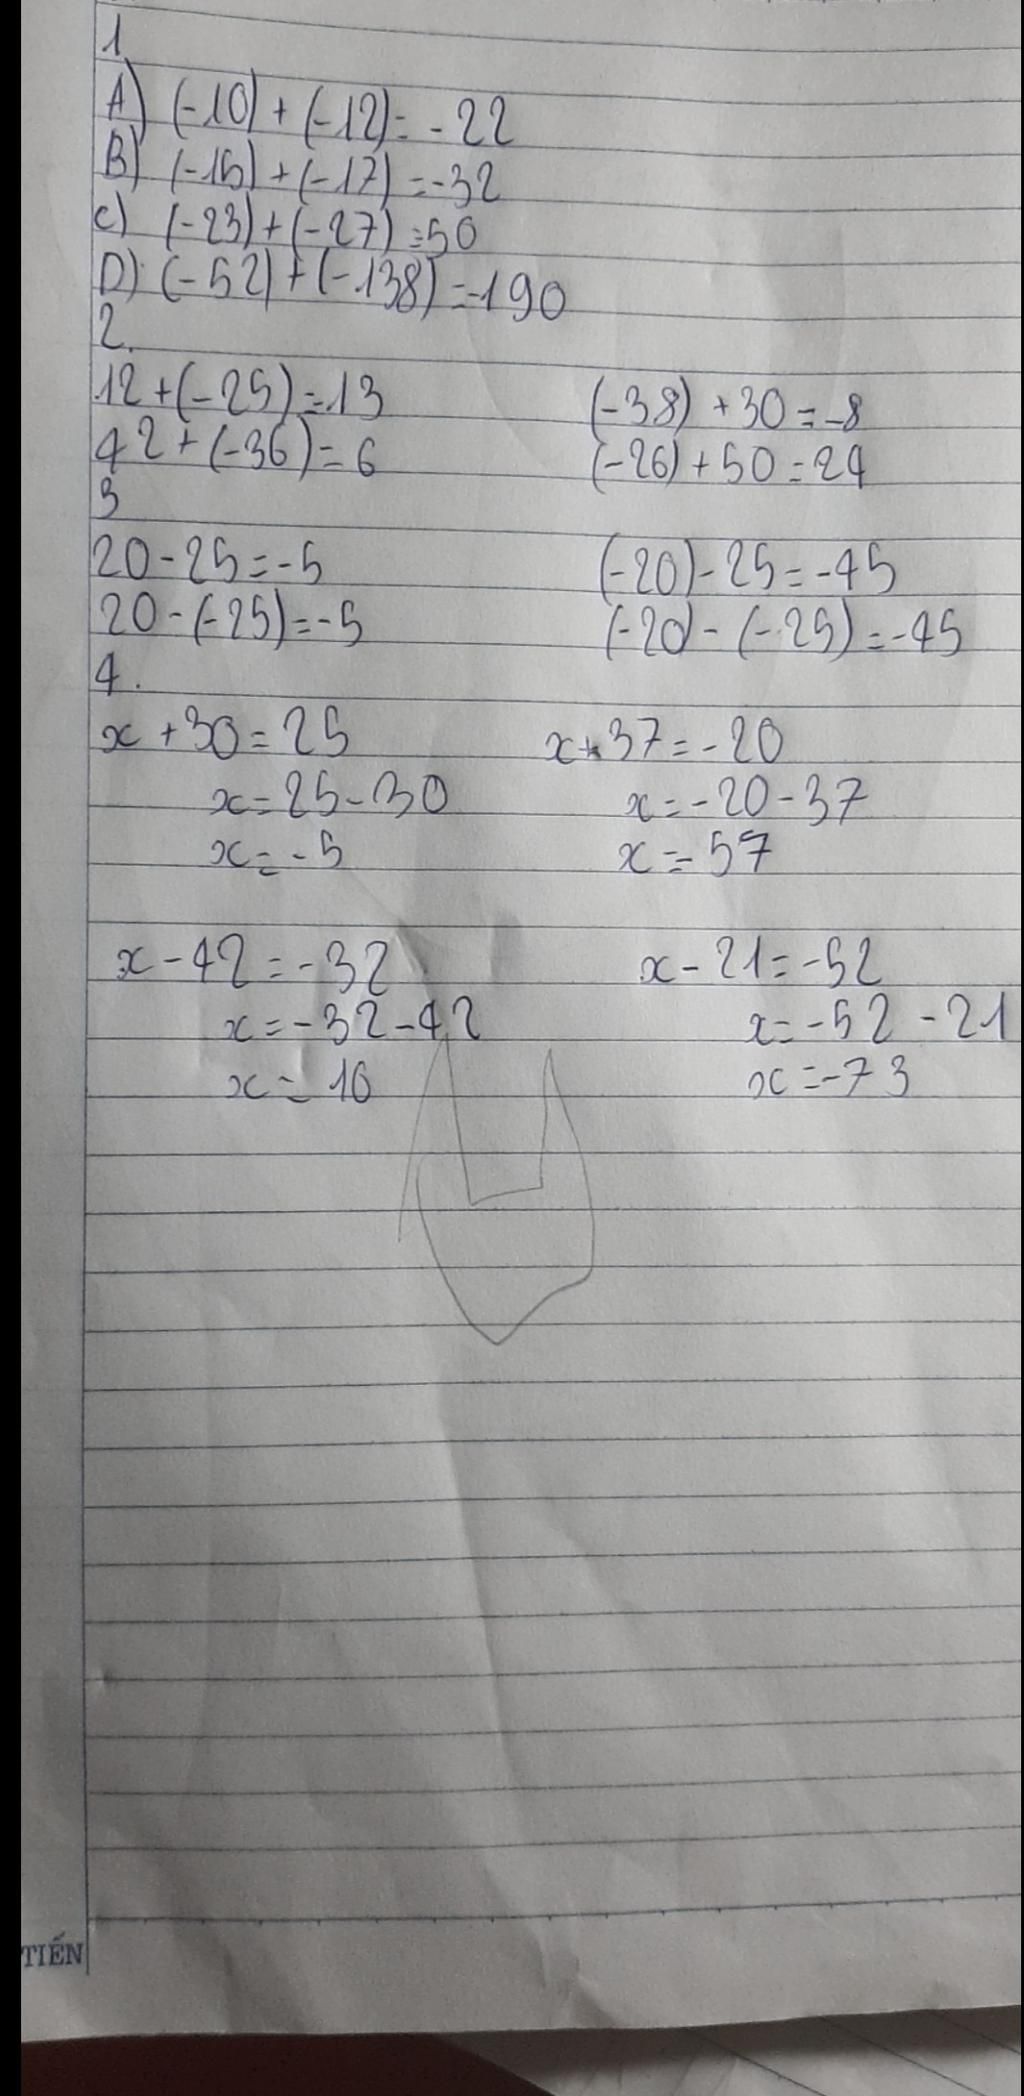 1
A) (-10) + (-12) = -22
B) (-15) + (-17) = -32
C) (-23) + (-27) = 50
D) (-52) + (-138) = -190
2.
12 + (-25) = 13 (-38) + 30 = -8
42 + (-36) = 6 (-26) + 50 = 24
3
20 - 25 = -5 (-20) - 25 = -45
20 - (-25) = -5 (-20) - (-25) = -45
4.
x + 30 = 25 x + 37 = -20
x = 25 - 30 x = -20 - 37
x = -5 x = 57
x - 42 = -32 x - 21 = -52
x = -32 - 42 x = -52 - 21
x = 10 x = -73
TIẾN